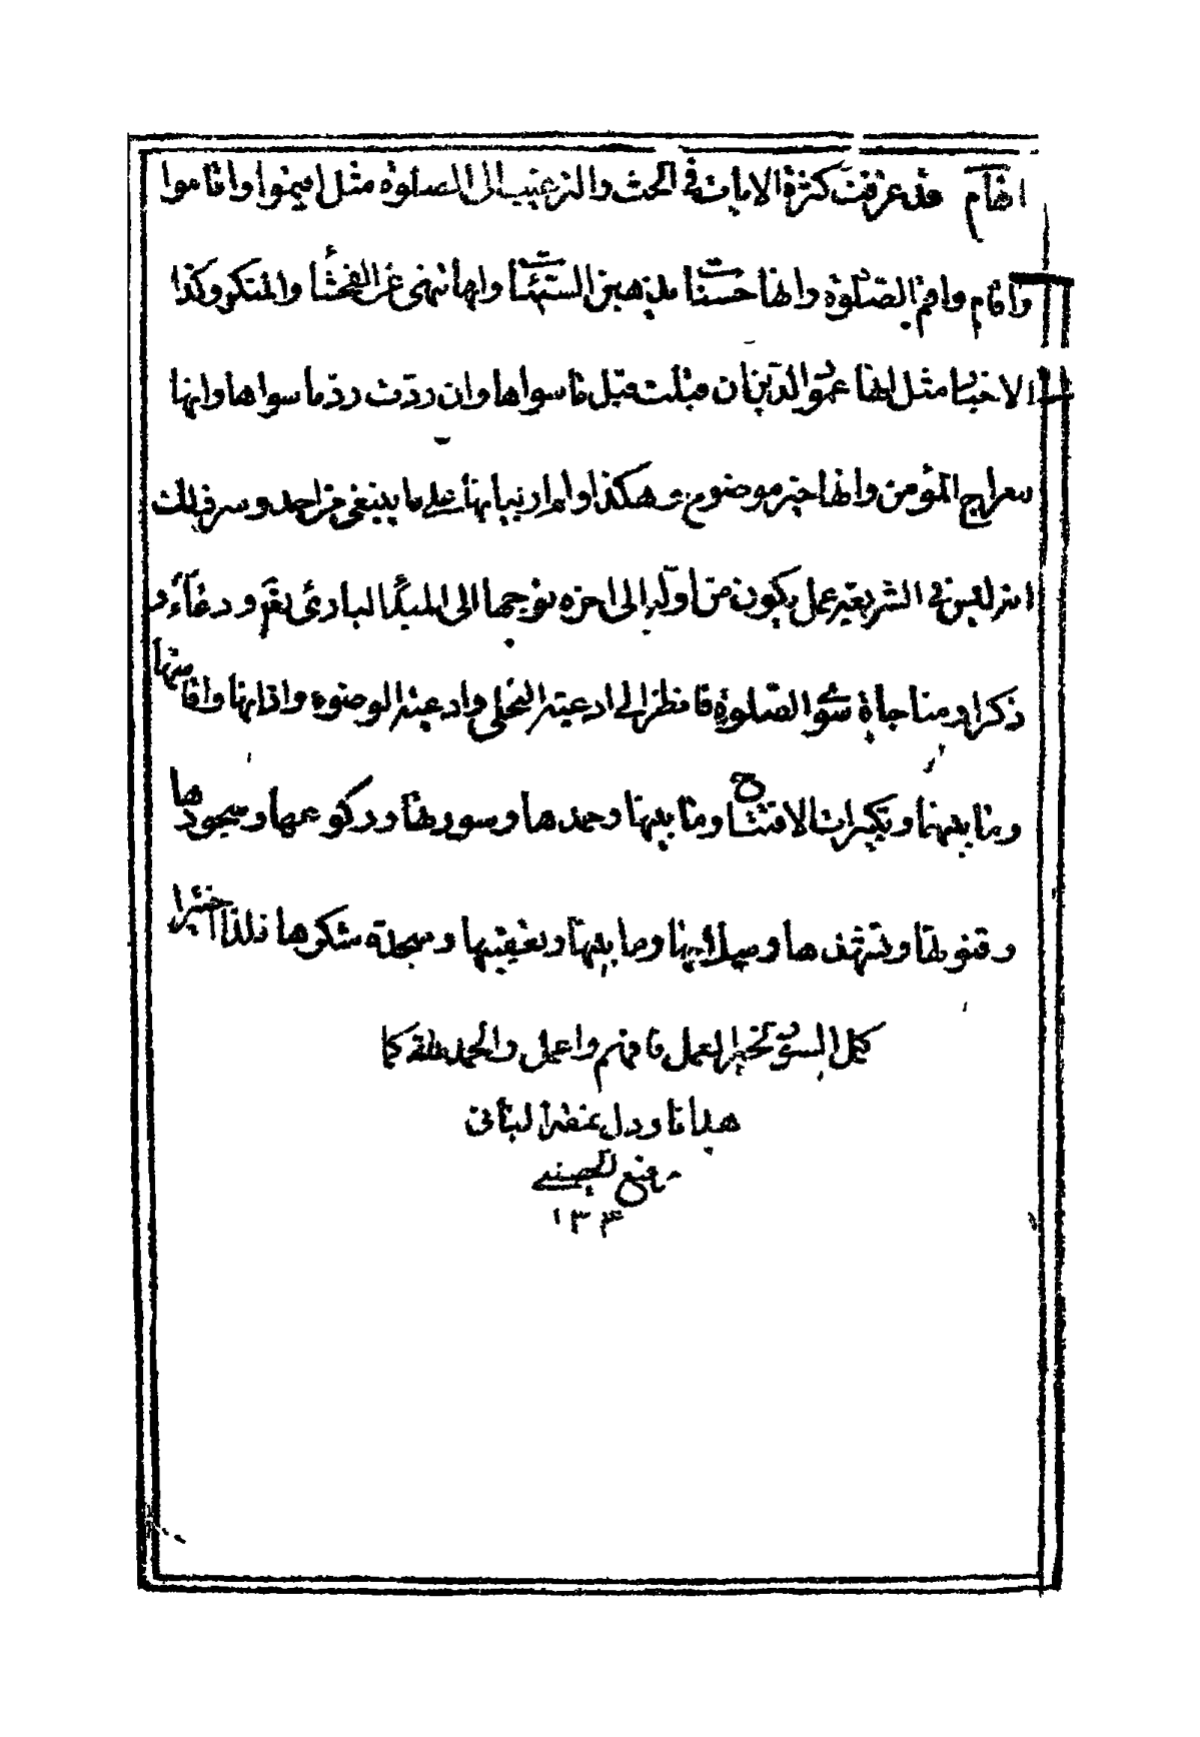 اتمام قد عرفت كثرة الايات في الحث والترغيب الى الصلوة مثل اقيموا واقاموا
واقام واقم الصلوة وانها حسنات يذهبن السيئات وانها تنهى عن الفحشاء والمنكر وكذا
الاخبار مثل انها عمود الدين ان قبلت قبل ما سواها وان ردت رد ما سواها وانها
معراج المؤمن وانها خير موضوع وهكذا ولم ار نبيانها على ما ينبغي من احد وسر ذلك
انه ليس في الشريعة عمل يكون من اوله الى اخره توجها الى المبدأ البارئ نعم ودعاء و
ذكرا ومناجاة سوى الصلوة فانظر الى ادعية التخلي وادعية الوضوء واذانها واقامتها
وما بينهما وتكبيرات الافتتاح وما بينها وحمدها وسورتها وركوعها وسجودها
وقنوتها وتشهدها وسلامها وما بينها وتعقيبها وسجدة شكرها فلذا اخير
كمل السوى لخير العمل فافهم واعمل والحمد لله كما
هدانا ودل
١٣٠٤